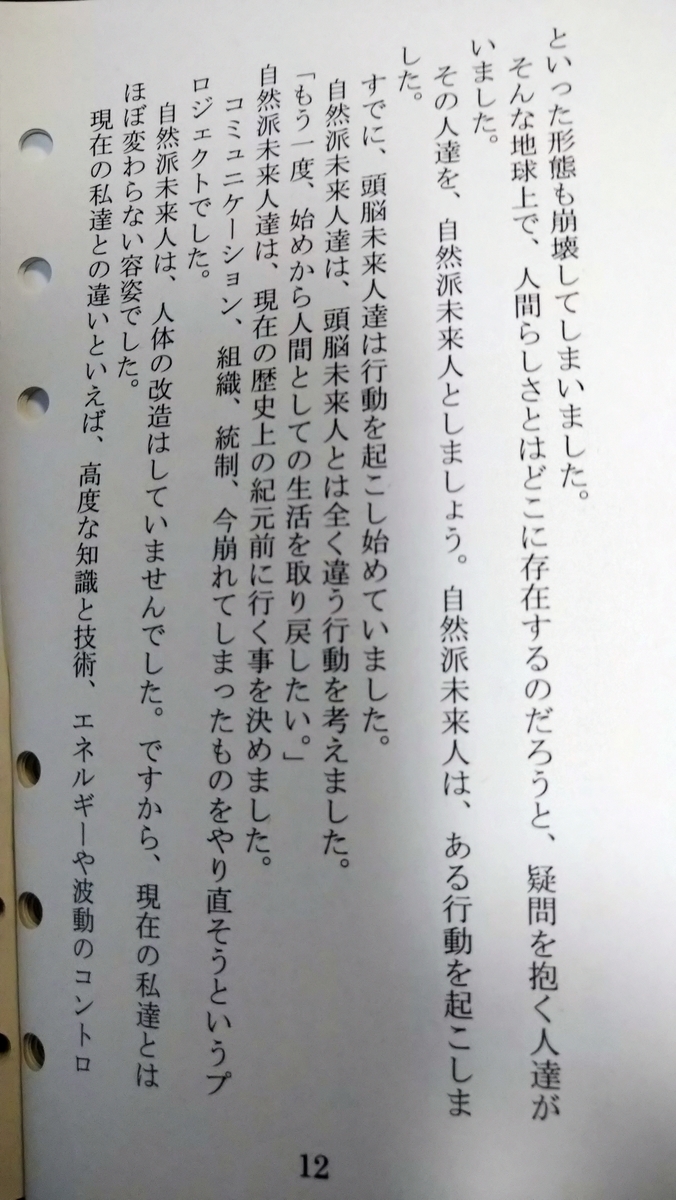 といった形態も崩壊してしまいました。
そんな地球上で、人間らしさとはどこに存在するのだろうと、疑問を抱く人達が
いました。
その人達を、自然派未来人としましょう。自然派未来人は、ある行動を起こしま
した。
すでに、頭脳未来人達は行動を起こし始めていました。
自然派未来人達は、頭脳未来人とは全く違う行動を考えました。
「もう一度、始めから人間としての生活を取り戻したい。」
自然派未来人達は、現在の歴史上の紀元前に行く事を決めました。
コミュニケーション、組織、統制、今崩れてしまったものをやり直そうというプ
ロジェクトでした。
自然派未来人は、人体の改造はしていませんでした。ですから、現在の私達とは
ほぼ変わらない容姿でした。
現在の私達との違いといえば、高度な知識と技術、エネルギーや波動のコントロ
12